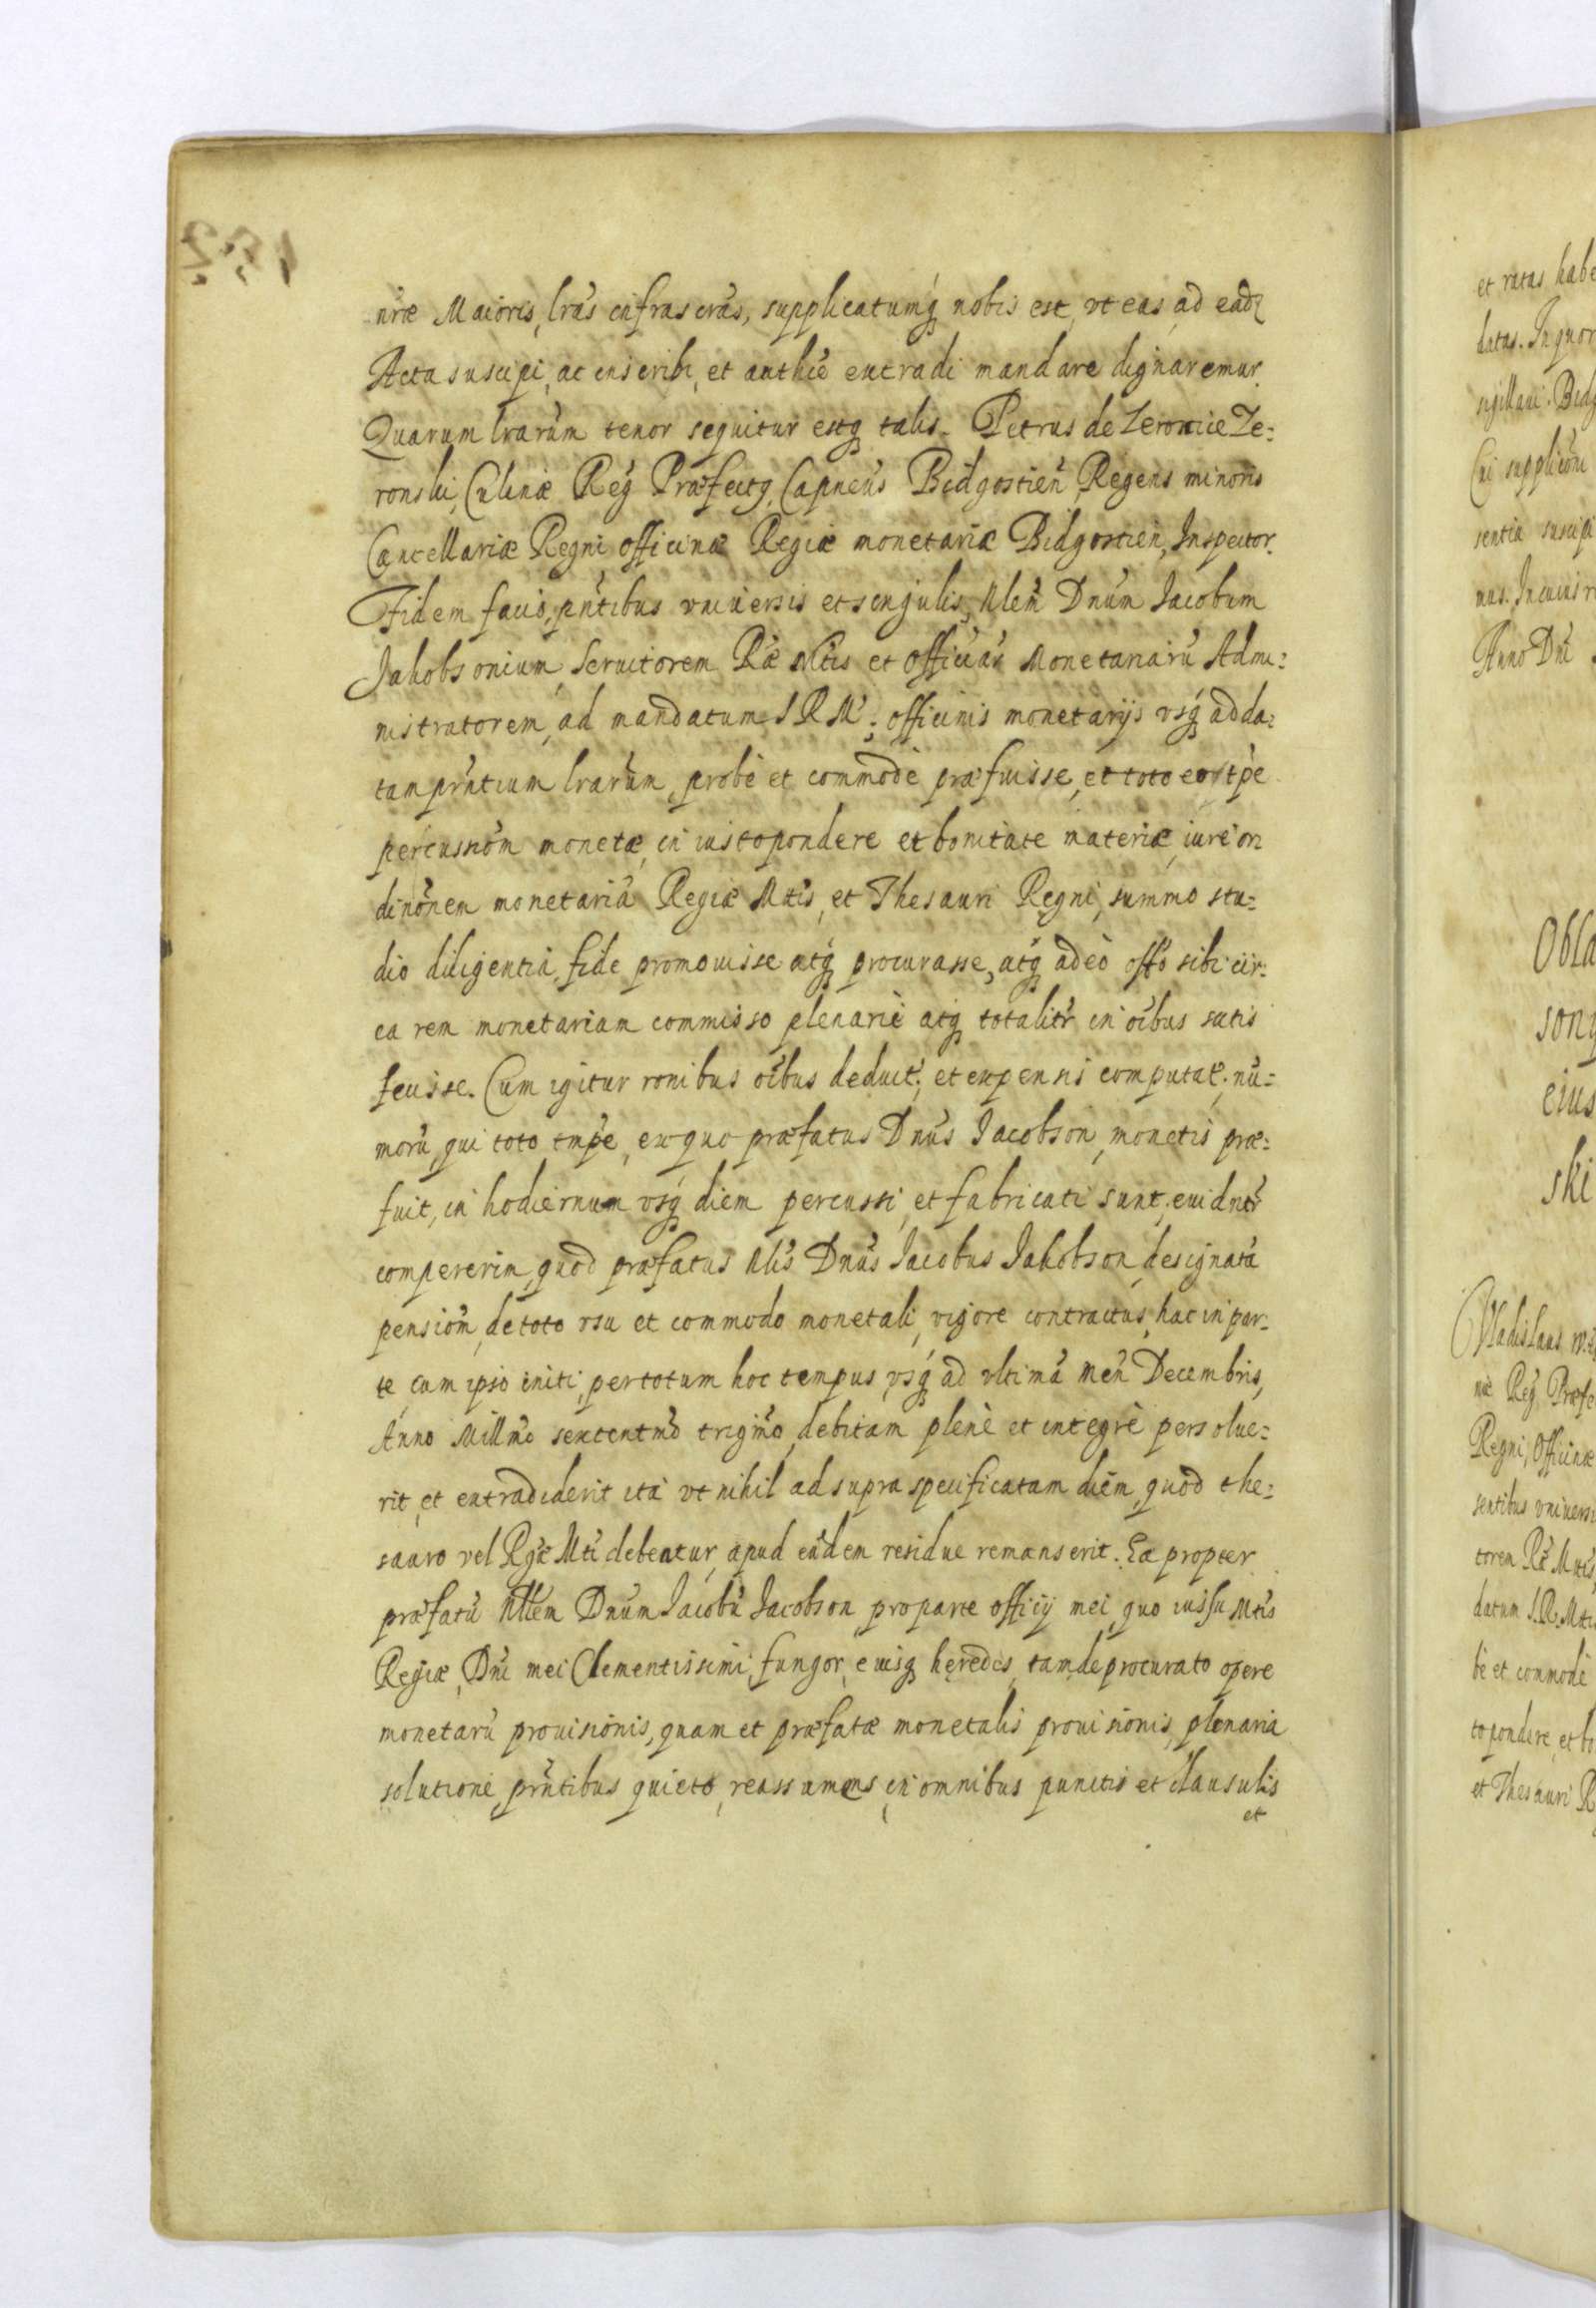 nr̃ae Maioris, lrãs infrascrãs, supplicatumq́ nobis est, vt eas ad eadẓ
Acta suscipi, ac inscribi, et authẽ extradi mandare dignaremur.
Quarum lrarũm tenor sequitur estq talis. Petrus de Zeronice Ze:
ronski, Culinæ Reg̃ Præfectq, Capneũs Bidgostien̄ Regens minoris
Cancellariæ Regni officinæ Regiæ monetariæ Bidgostien̄, Inspector.
Fidem facio, pñtibus vniuersis et singulis, Nlem̃ Dnũm Iacobum
Jakobsonium, Seruitorem Rǣ Mtis et Officiar̃ Monetariarũ Admi:
nistratorem, ad mandatum S R M: officinis monetarijs vsq́ ad da:
tam prñtium lrarũm, probè et commodè præfuisse, et toto eo tp̃e
percussiom̃ monetæ, in iusto pondere et bonitate materiæ, iure or
dinõnem monetariã Regiæ Mtis, et Thesauri Regni, summo stu:
dio diligentiã, fide promouisse atq́ procurasse, atq́ adeò offõ sibi cir:
ca rem monetariam commisso plenariè atq́ totalitr̃ in oĩbus satis
fecisse. Cum igitur ronibus oĩbus deduct:, et expensis computat:, nũ:
morũ, qui toto tmp̃e, ex quo præfatus Dnũs Jacobson, monetis præ:
fuit, in hodiernum vsq́ diem percussi, et fabricati sunt, euidntr̃
compererim, quod præfatus Nlis̃ Dnũs Iacobus Jakobson, designatã
pensiom̃, de toto vsu et commodo monetali, vigore contractus, hac in par:
te, cum ipso initi, per totum hoc tempus, vsq́ ad vltimã men̄ Decembris,
Anno Millm̃o sexcentm̃o trigm̃o, debitam plenè et integrè persolue:
rit, et extradiderit ita vt nihil ad supra specificatam diem, quod the:
sauro vel Rgæ̃ Mti debeatur, apud eũdem residue remanserit. Ea propter
præfatũ Nllem̃ Dnũm Iacobũ Jacobson, pro parte officij mei, quo iussu Mtis̃
Regiæ, Dnĩ mei Clementissimi, fungor, eiusq hęredes, tam de procurato opere
monetarũ prouisionis, quam et præfatæ monetalis prouisionis, plenaria
solutione, prñtibus quieto, reassumens, in omnibus punctis et clausulis
et
et ratas habe
datas. In quor
sigillaui. Bidg
Cui supplicõni
sentia suscipi
mus. In cuius r
Anno Dnĩ
Obla
sony
eius
ski
Vladislaus
næ Reg̃ Præfe
Regni, Officinæ
sentibus vniuersi
torem Ræ̃ Mtis
datum S.R.Mtis
bè et commodè
to pondere, et bo
et Thesauri R